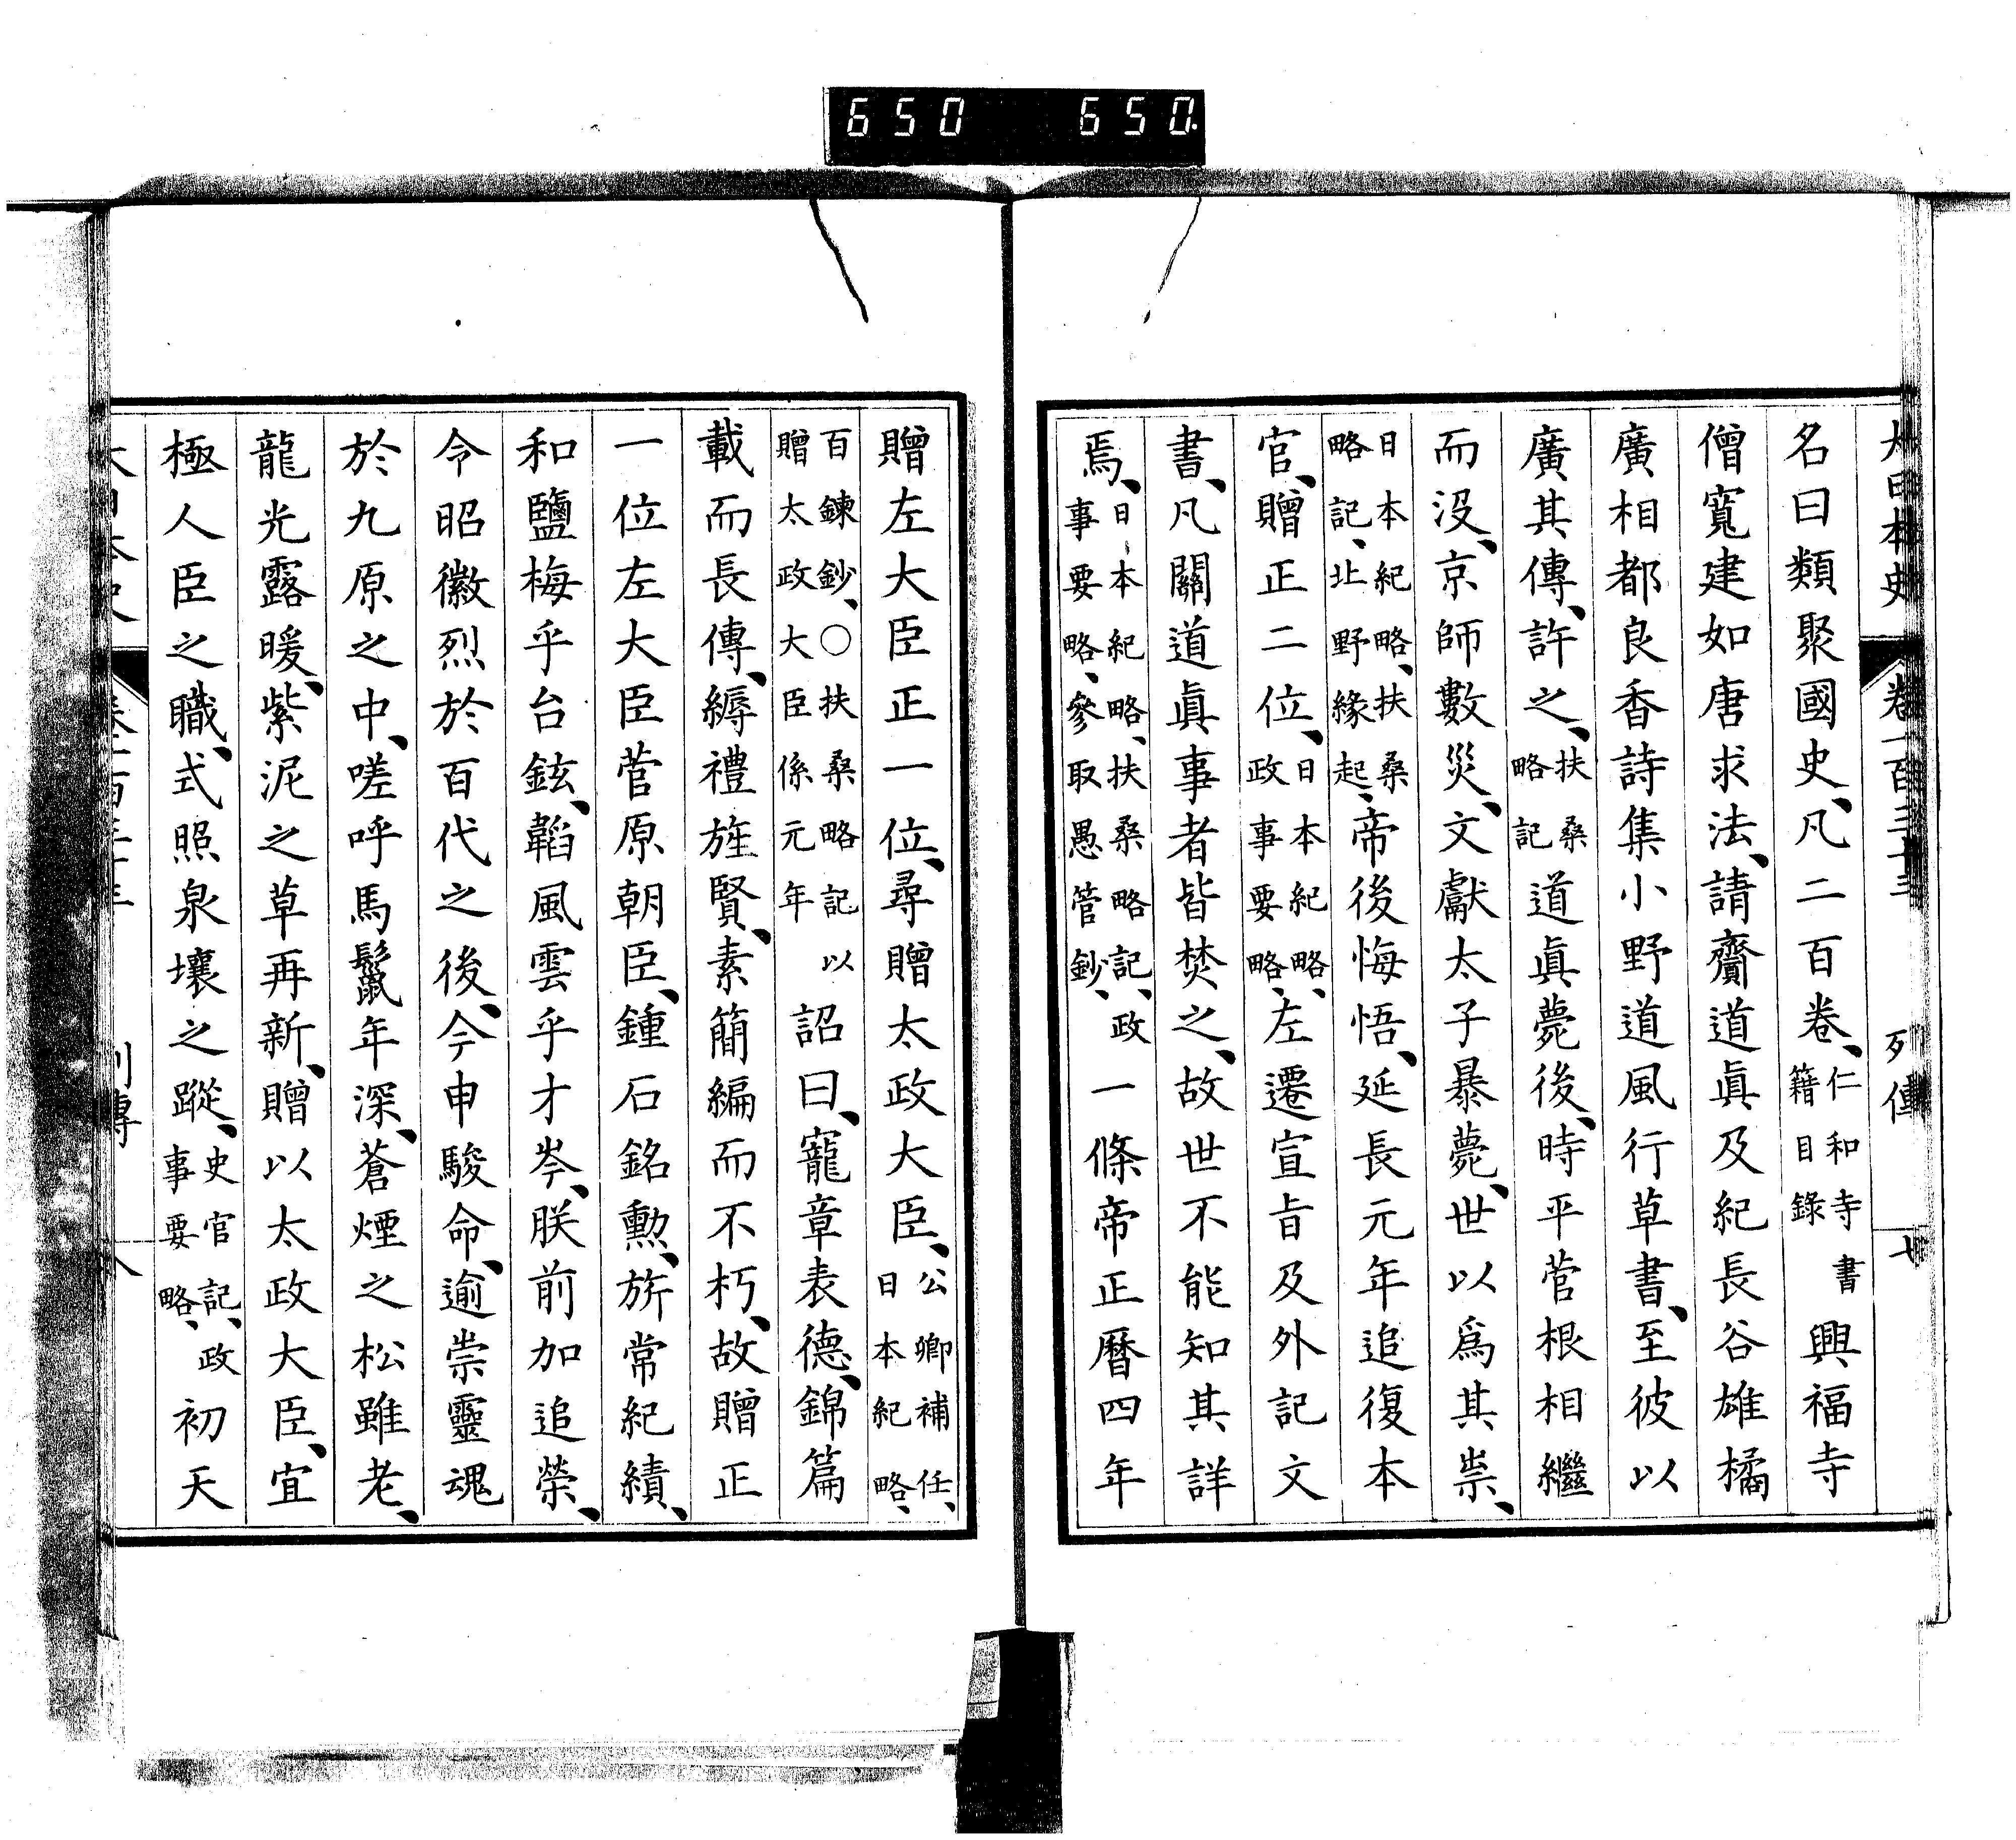 650 650
大日本史 卷一百三十三 列傳 七
名曰類聚國史、凡二百卷、仁和寺書籍目錄興福寺
僧寬建如唐求法、請齎道眞及紀長谷雄橘
廣相都良香詩集小野道風行草書、至彼以
廣其傳、許之、扶桑略記道眞薨後、時平菅根相繼
而沒、京師數災、文獻太子暴薨、世以爲其祟、
日本紀略、扶桑略記、北野緣起、帝後悔悟、延長元年追復本
官、贈正二位、日本紀略、政事要略、左遷宣旨及外記文
書、凡關道眞事者皆焚之、故世不能知其詳
焉、日本紀略、扶桑略記、政事要略、參取愚管鈔、一條帝正曆四年
贈左大臣正一位、尋贈太政大臣、公卿補任、日本紀略、
百鍊鈔、○扶桑略記以贈太政大臣係元年詔曰、寵章表德、錦篇
載而長傳、縟禮旌賢、素簡編而不朽、故贈正
一位左大臣菅原朝臣、鍾石銘勳、旂常紀績、
和鹽梅乎台鉉、韜風雲乎才岑、朕前加追榮、
令昭徽烈於百代之後、今申駿命、逾崇靈魂
於九原之中、嗟呼馬鬣年深、蒼煙之松雖老、
龍光露暖、紫泥之草再新、贈以太政大臣、宜
極人臣之職、式照泉壤之蹤、史官記、政事要略、初天
列傳 八